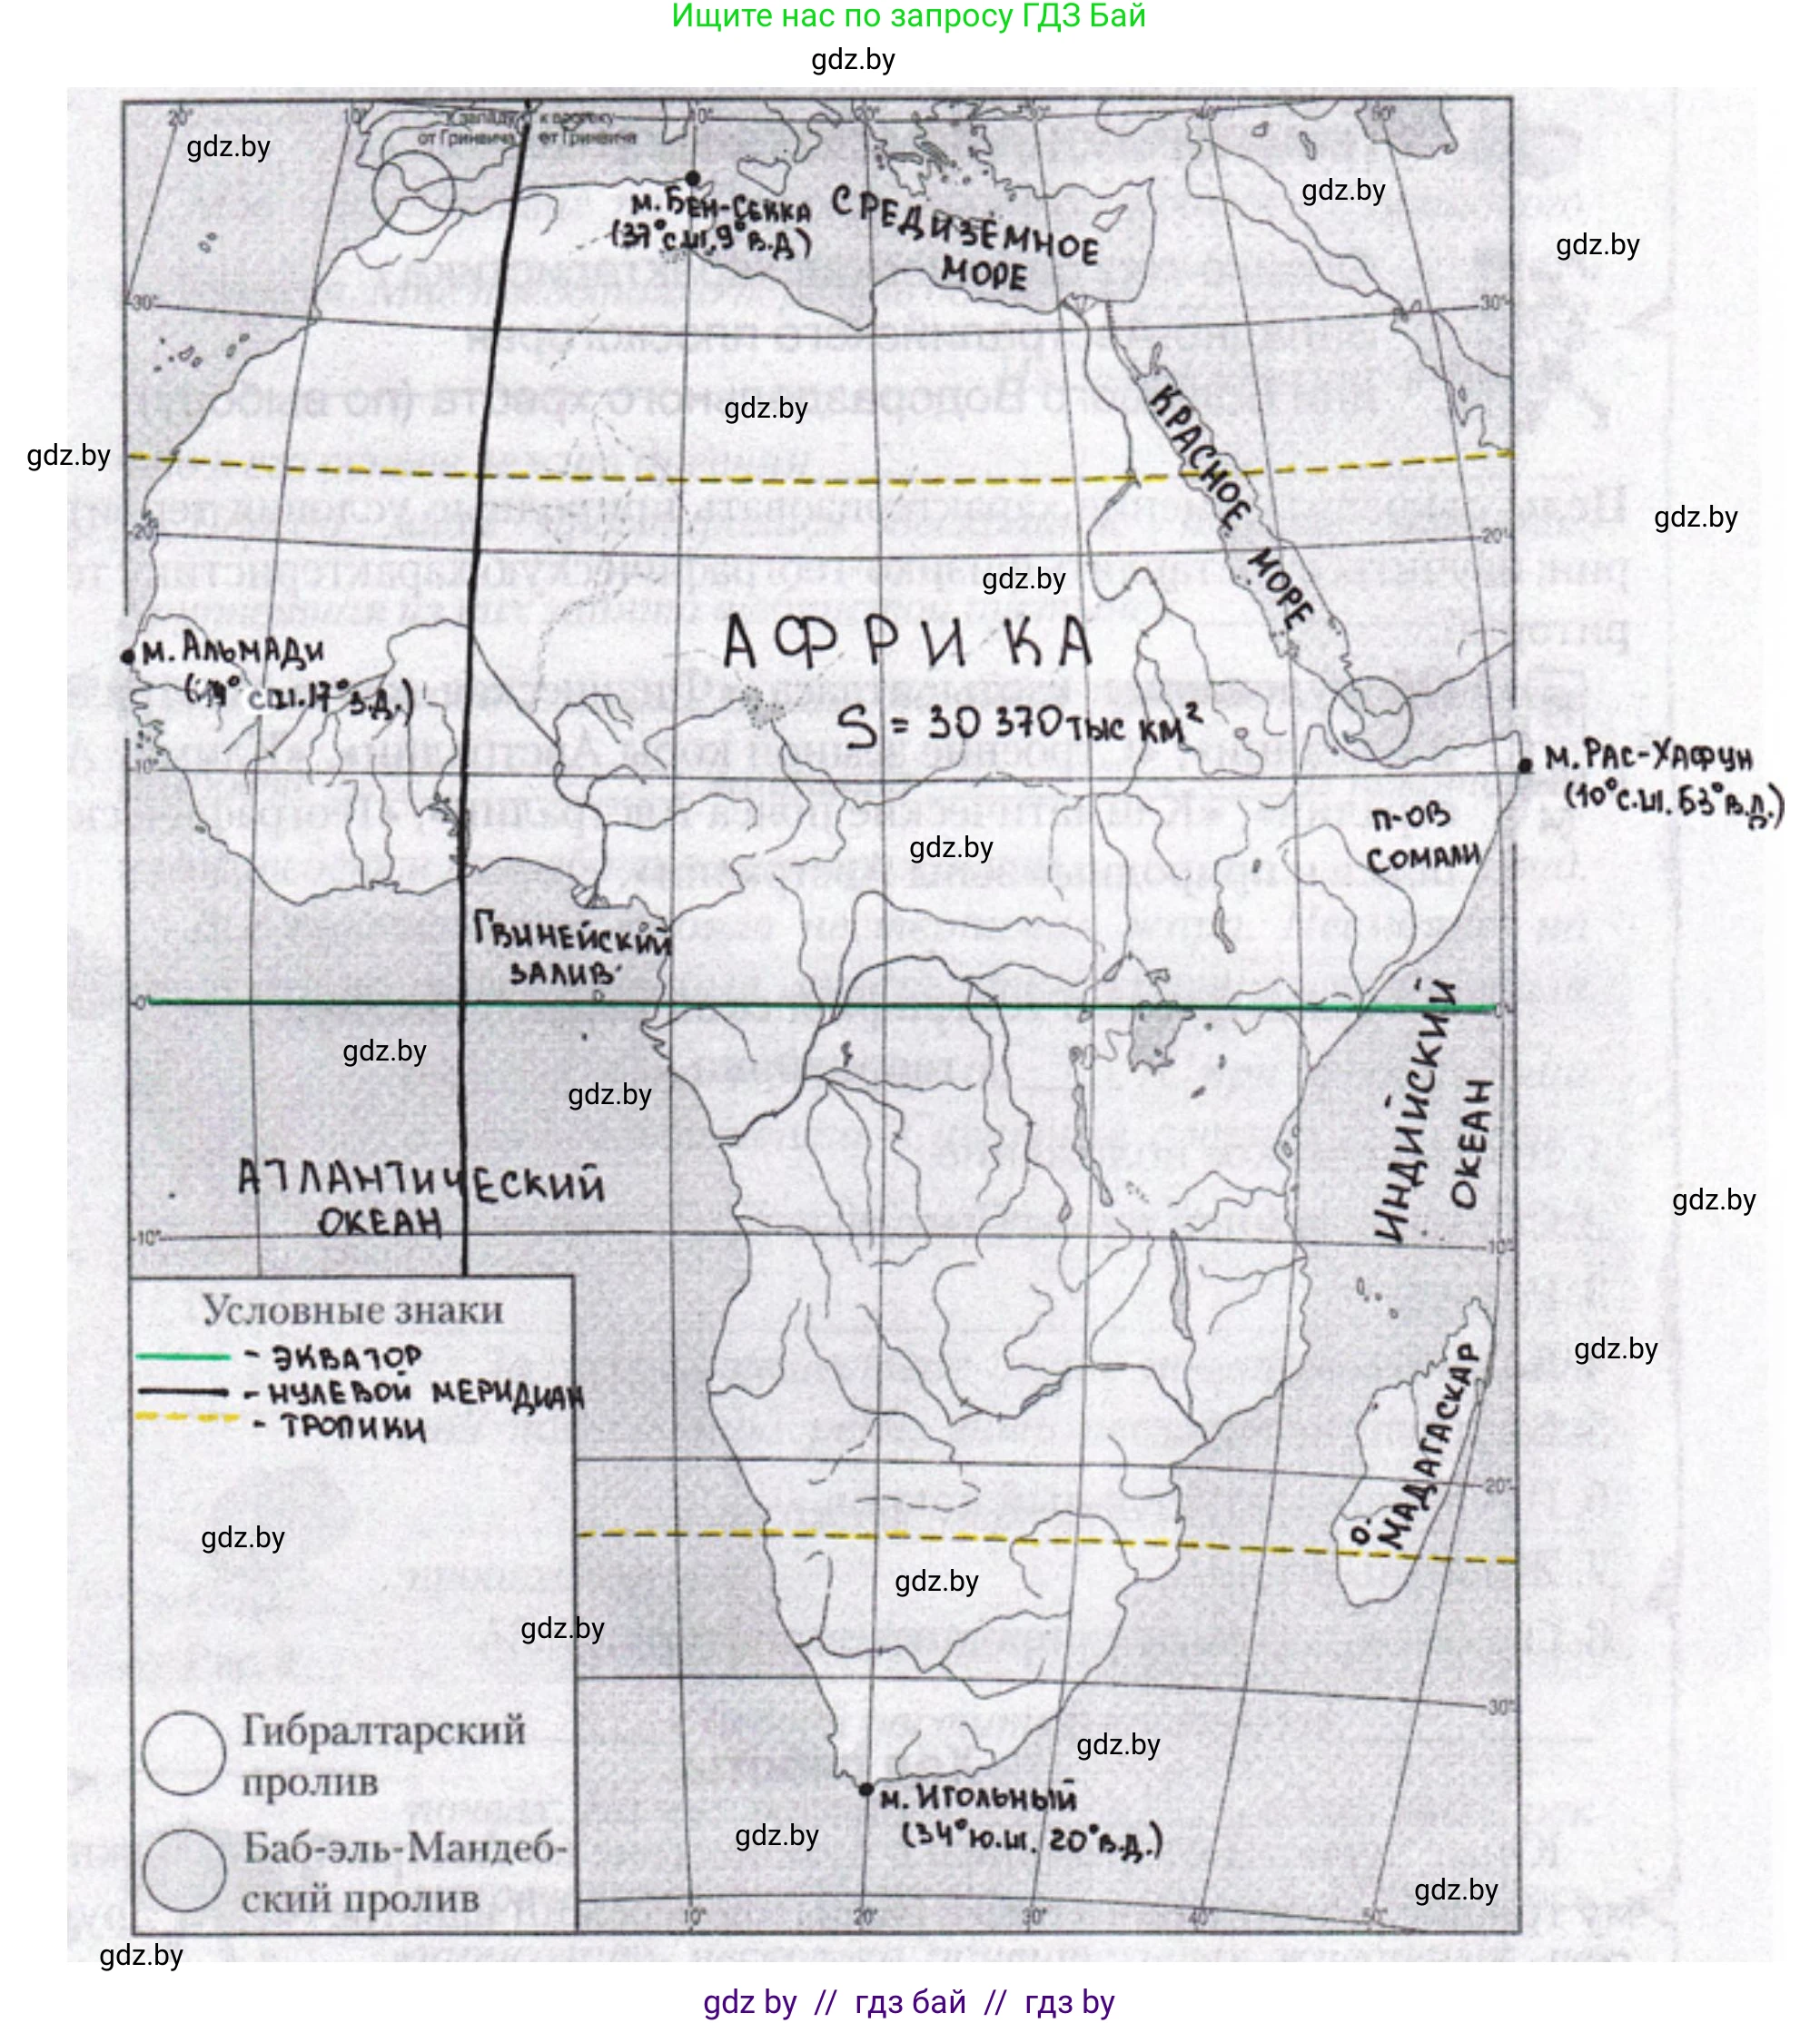 Ищите нас по запросу ГДЗ Бай
gdz.by
20° 10° к западу от Гринвича к востоку от Гринвича 10° 20° 30° 40° 50°
gdz.by
gdz.by
м. Бен-Секка
(37°с.ш. 9°в.д)
СРЕДИЗЕМНОЕ
МОРЕ
gdz.by
30° 30°
gdz.by
КРАСНОЕ МОРЕ
gdz.by
gdz.by
20° 20°
gdz.by
АФРИКА
м. Альмади
(14° с.ш. 17° з.д.)
S = 30 370 тыс км²
м. Рас-Хафун
(10°с.ш. 53°в.д.)
10°
п-ов
Сомали
gdz.by
Гвинейский
залив
0° 0°
gdz.by
gdz.by
ИНДИЙСКИЙ
ОКЕАН
АТЛАНТИЧЕСКИЙ
ОКЕАН
gdz.by
10° 10°
Условные знаки
- ЭКВАТОР
- НУЛЕВОЙ МЕРИДИАН
- ТРОПИКИ
gdz.by
о. МАДАГАСКАР
20°
gdz.by
gdz.by
gdz.by
30°
Гибралтарский
пролив
gdz.by
м. Игольный
(34°ю.ш. 20°в.д.)
gdz.by
Баб-эль-Мандеб-
ский пролив
gdz.by
10° 20° 30° 40° 50°
gdz.by
gdz by // гдз бай // гдз by